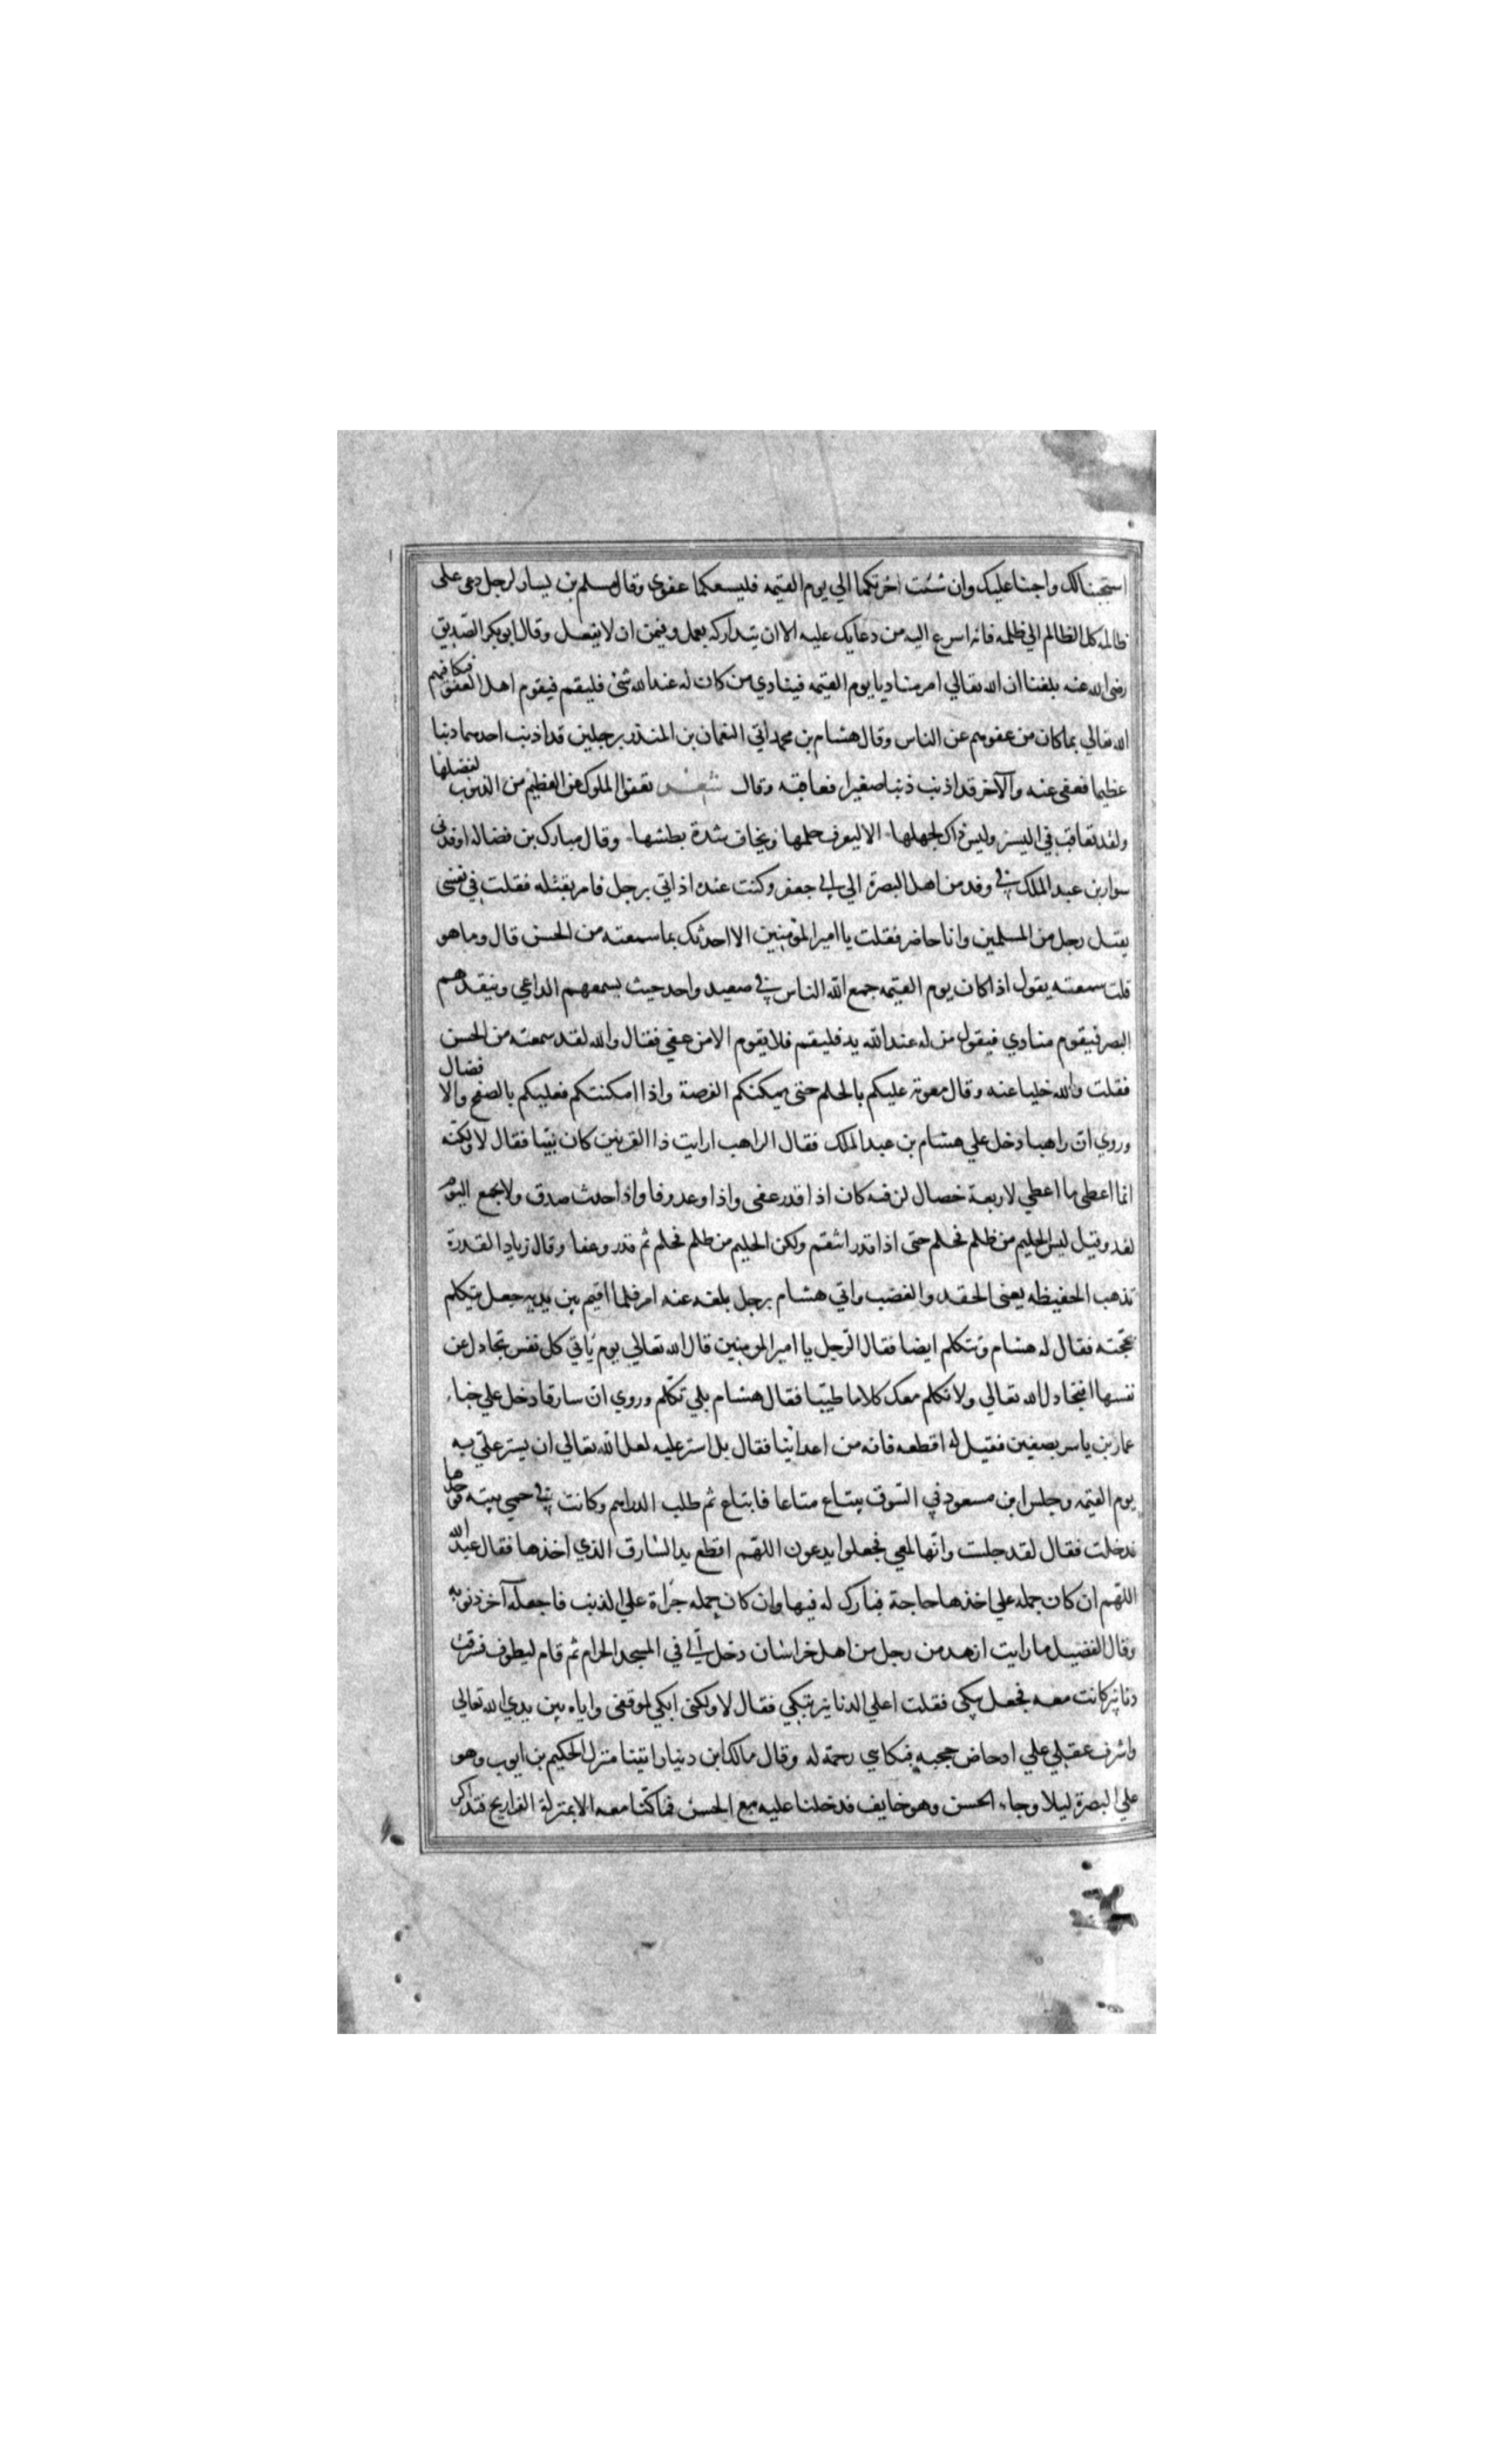 استجبنا لك واجبنا عليك وان شئت اخرتكما الي يوم القيمه فليسعكما عفوي وقال مسلم بن يسار لرجل دعي علي
ظالمه كل الظالم الي ظلمه فانه اسرع اليه من دعايك عليه الا ان يتداركه بعمل وقمن ان لا يفعل وقال ابو بكر الصديق
رضي الله عنه بلغنا ان الله تعالي امر مناديا يوم القيمه فينادي من كان له عند الله شئ فليقم فيقوم اهل العفو فيكافيهم
الله تعالي بما كان من عفوهم عن الناس وقال هشام بن محمد اتي النعمان بن المنذر برجلين قد اذنب احدهما ذنبا
عظيما فعفي عنه والآخر قد اذنب ذنبا صغيرا فعاقبه وقال شعر تعفو الملوك عن العظيم من الذنوب لفضلها
ولقد تعاقب في اليسير وليس ذاك لجهلها الا ليعرف حلمها ويخاف شدة بطشها وقال مبارك بن فضاله اوفدني
سوار بن عبد الملك في وفد من اهل البصرة الي ابي جعفر وكنت عنده اذ اتي برجل فامر بقتله فقلت في نفسي
يقتل رجل من المسلمين وانا حاضر فقلت يا امير المؤمنين الا احدثك بما سمعته من الحسن قال وما هو
قلت سمعته يقول اذا كان يوم القيمه جمع الله الناس في صعيد واحد حيث يسمعهم الداعي وينفدهم
البصر فيقوم منادي فيقول من له عند الله يد فليقم فلا يقوم الا من عفي فقال والله لقد سمعته من الحسن
فقلت والله خليا عنه وقال معوية عليكم بالحلم حتي يمكنكم الفرصة واذا امكنتكم فعليكم بالصفح والا فضال
وروي ان راهبا دخل علي هشام بن عبد الملك فقال الراهب ارايت ذا القرنين كان نبيا فقال لا ولكنه
انما اعطي ما اعطي لاربعة خصال لن فيه كان اذا قدر عفي واذا وعد وفا واذا حدث صدق ولا يجمع اليوم
لغد وقيل ليس الحليم من ظلم فحلم حتي اذا قدر انتقم ولكن الحليم من ظلم فحلم ثم قدر وعفا وقال زياد القدرة
تذهب الحفيظه يعني الحقد والغضب واتي هشام برجل بلغه عنه امر فلما اقيم بين يديه جعل يتكلم
بحجته فقال له هشام وتتكلم ايضا فقال الرجل يا امير المومنين قال الله تعالي يوم ياتي كل نفس تجادل عن
نفسها افتجادل الله تعالي ولا نكلم معك كلاما طيبا فقال هشام بلي تكلم وروي ان سارقا دخل علي خباء
عمار بن ياسر بصفين فقيل له اقطعه فانه من اعدائنا فقال بل استر عليه لعل الله تعالي ان يستر علي به
يوم القيمه وجلس ابن مسعود في السوق يبتاع متاعا فابتاع ثم طلب الدراهم وكانت في
فدخلت فقال لقد جلست وانها لمعي فجعلوا يدعون اللهم اقطع يد السارق الذي اخذها فقال عبد الله
اللهم ان كان حمله علي اخذها حاجة فبارك له فيها وان كان حمله جراة علي الذنب فاجعله آخر ذنوبه
وقال الفضيل ما رايت ازهد من رجل من اهل خراسان دخل الي في المسجد الحرام ثم قام ليطوف فسرقت
دنانير كانت معه فجعل يبكي فقلت اعلي الدنانير تبكي فقال لا ولكني ابكي لموقفي واياه بين يدي الله تعالي
واشرف عقلي علي ادحاض حجبه فبكاي رحمة له وقال مالك ابن دينار اتينا منزل الحكيم بن ايوب وهو
علي البصرة ليلا وجاء الحسن وهو خايف فدخلنا عليه مع الحسن فما كنا معه الا بمنزلة الفراريج فذاكر